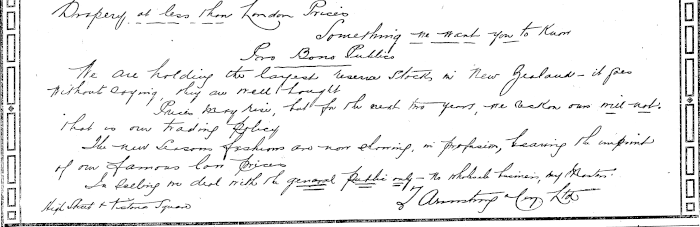 Drapery at less than London Prices
Something we want you to Know
Pro Bono Publico
We are holding the largest reserve stocks in New Zealand - it goes
without saying they are well bought
Prices may rise, but for the next two years, we reckon ours will not.
that is our trading policy
The new seasons fashions are now showing, in profusion, bearing the imprint
of our famous low prices
In selling we deal with the general public only - no wholesale business, my thanks.
J Armstrong & Coy Ltd
High Street & Victoria Square